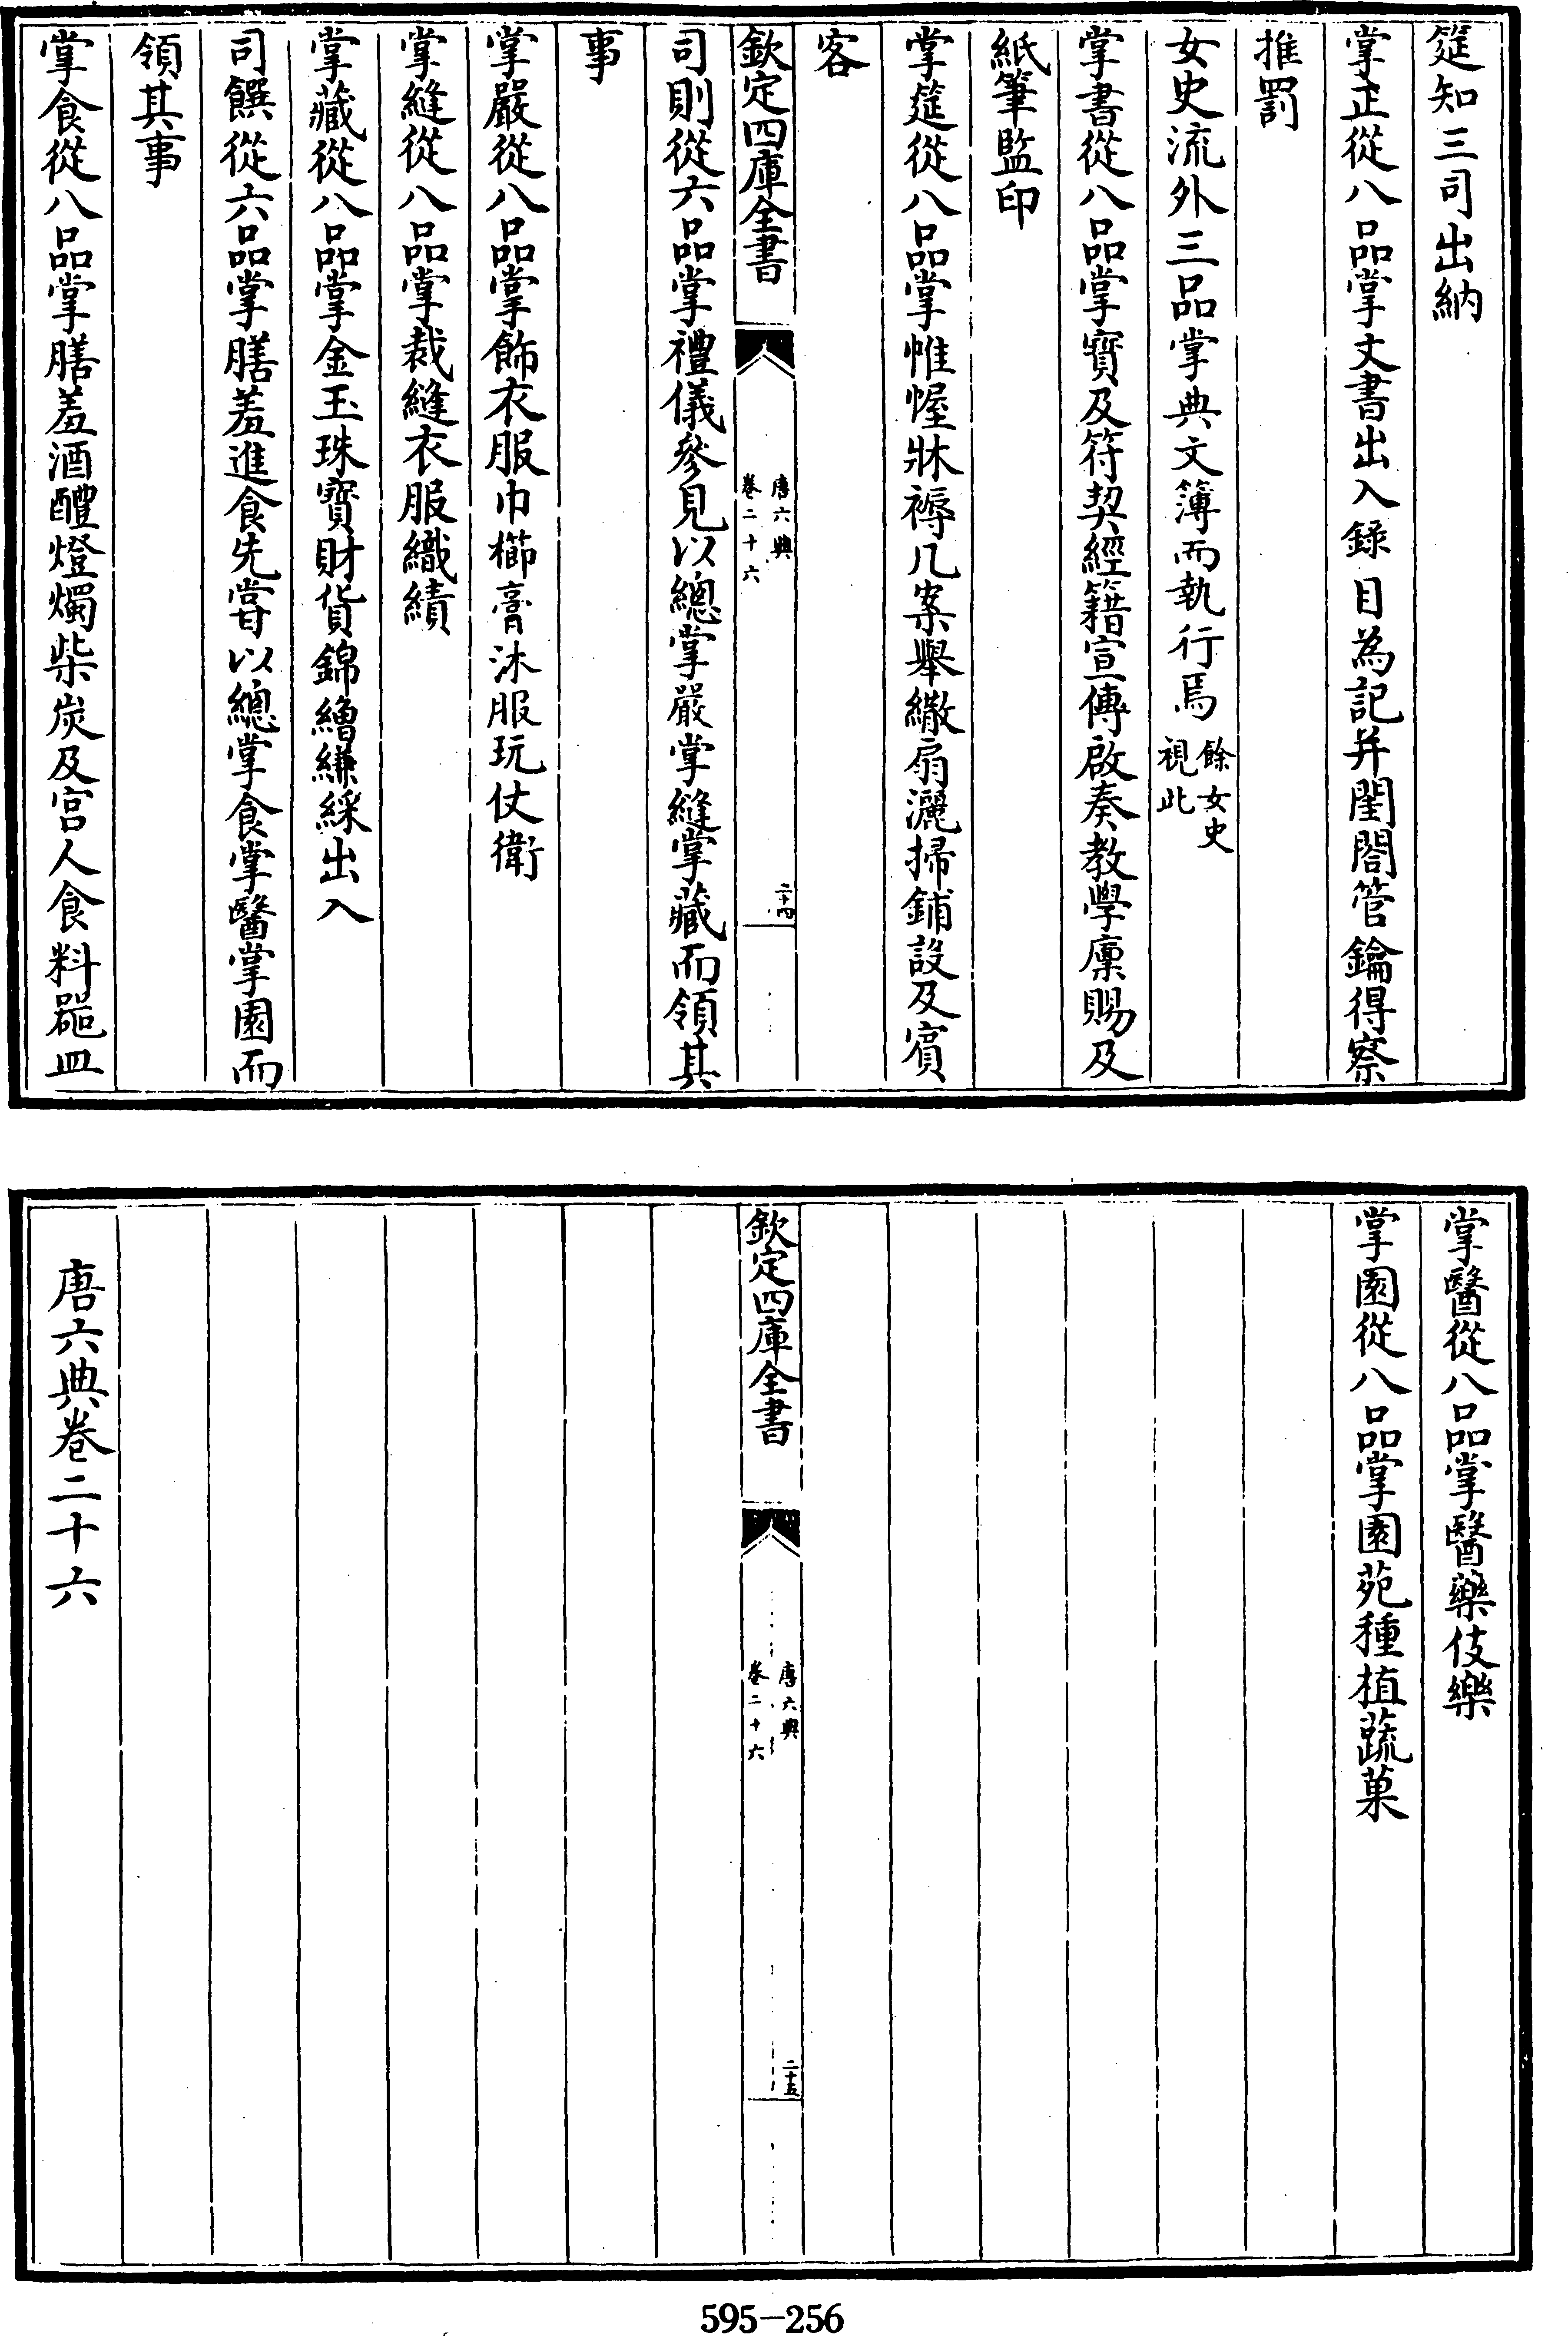 筵知三司出納
掌正從八品掌文書出入錄目為記并閨閤管鑰得察
推罰
女史流外三品掌典文簿而執行焉餘女史
視此
掌書從八品掌寶及符契經籍宣傳啟奏教學廩賜及
紙筆監印
掌筵從八品掌帷幄牀褥几案舉繖扇灑掃鋪設及賓
客
欽定四庫全書
唐六典
卷二十六
二十四
司則從六品掌禮儀參見以總掌嚴掌縫掌藏而領其
事
掌嚴從八品掌飾衣服巾櫛膏沐服玩仗衛
掌縫從八品掌裁縫衣服織績
掌藏從八品掌金玉珠寶財貨錦繒縑綵出入
司饌從六品掌膳羞進食先嘗以總掌食掌醫掌園而
領其事
掌食從八品掌膳羞酒醴燈燭柴炭及宮人食料器皿
掌醫從八品掌醫藥伎樂
掌園從八品掌園苑種植蔬菓
欽定四庫全書
唐六典
卷二十六
二十五
唐六典卷二十六
595-256